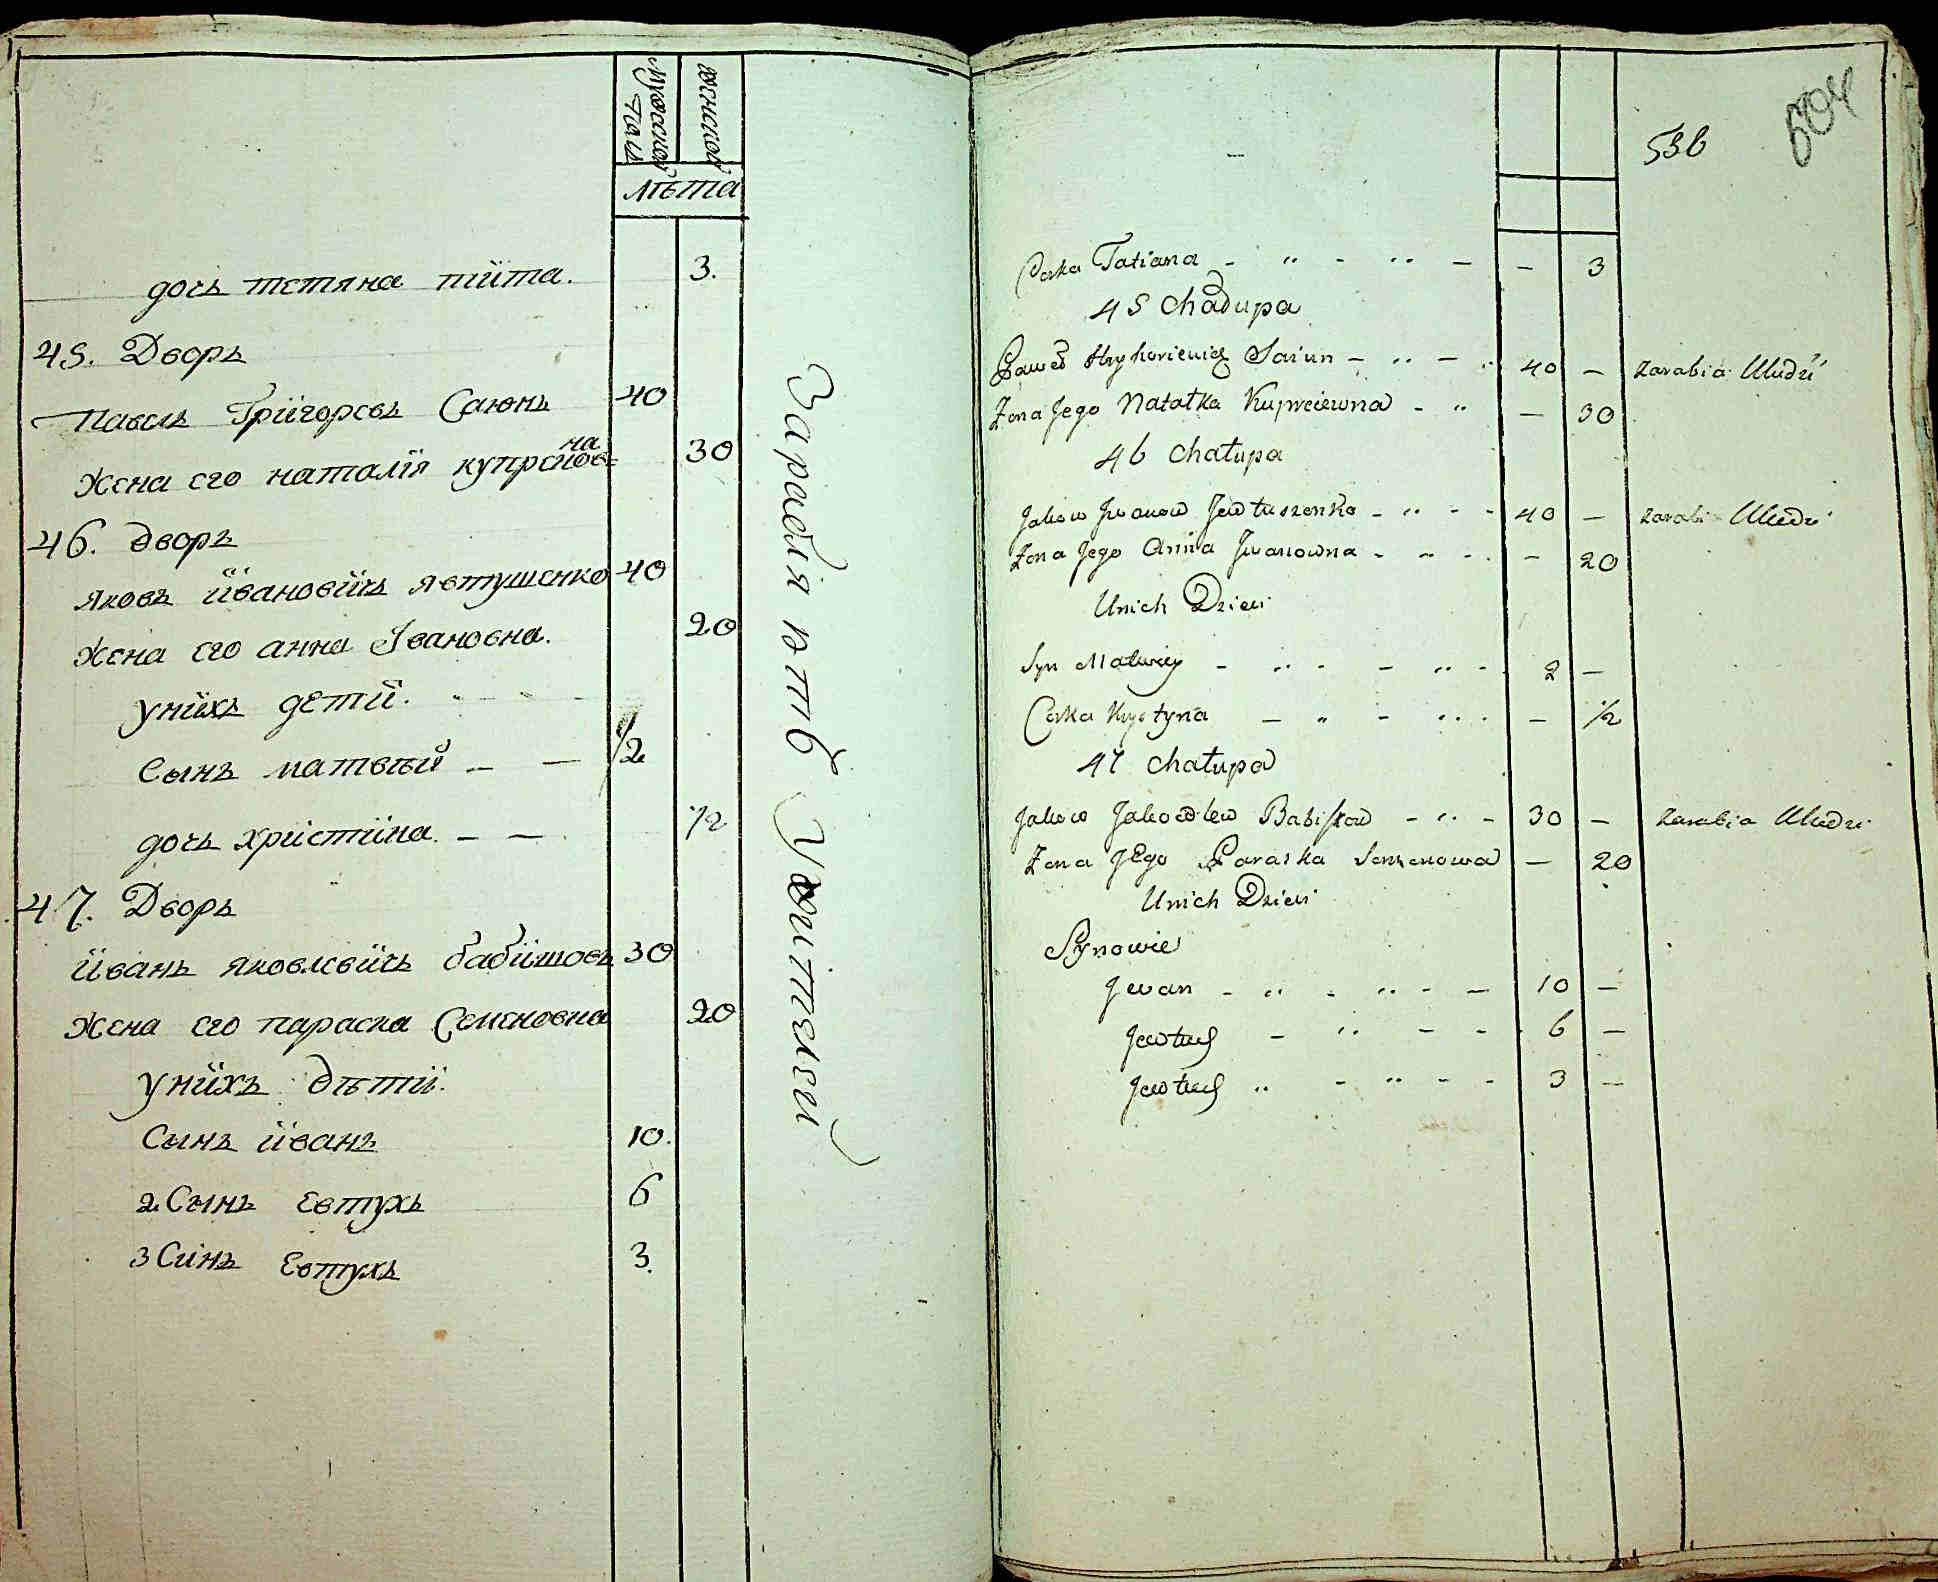 мужеска
пола
женска
лѣта
дочь тетяна тиїта. 3.
45. Дворъ
Павелъ Грїгоревъ Саюнъ 40
Жена его наталїя купреіовна 30
46. дворъ
яковъ ївановїчь явтушенко 40
Жена его анна Івановна. 20
унїхъ дети.
Сынъ матвѣй — — 1/2
дочь хрїстїна. — — 1/2
47. Дворъ
їванъ яковлевїчь бабїшовъ 30
Жена его параска Семеновна 20
унїхъ дѣтї.
Сынъ їванъ 10.
2 Сынъ Евтухъ 6
3 Синъ Евтухъ 3.
536
604
Corka Tatiana — 3
45 Chałupa
Paweł Hryhoriewicz Saiun 40 — zarabia
Żona Jego Natałka Kupreiewna — 30
46 Chałupa
Jakow Iwanow Jewtuszenko 40 — zarabia
Żona Jego Anna Iwanowna — 20
Unich Dzieci
Syn Matwiey 2 —
Corka Krystyna — 1/2
47 Chałupa
Jakow Jakowlew Babiszow 30 — zarabia
Żona JEgo Paraska Semenowa — 20
Unich Dzieci
Synowie
Jwan 10 —
Jewtuch 6 —
Jewtuch 3 —